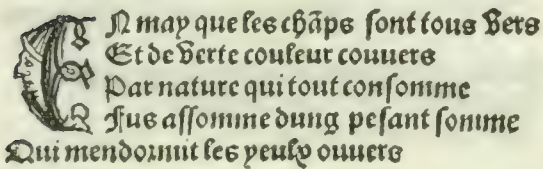 EN may que les chãps sont tous vers
Et de verte couleur couuers
Par nature qui tout consomme
Fus assomme dung pesant somme
Qui mendormit les yeulx ouuers